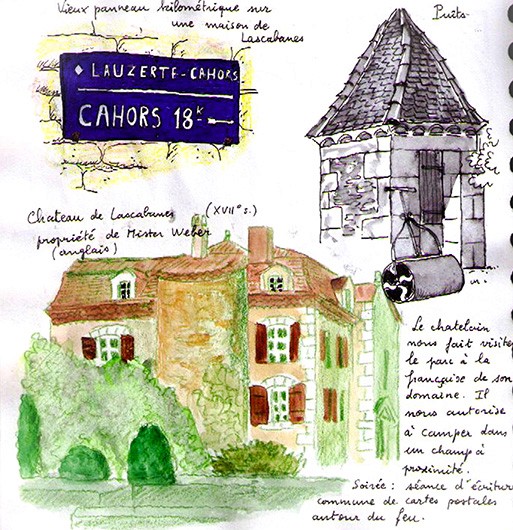 Vieux panneau kilométrique sur
une maison de
Lascabanes
Puits
◆ LAUZERTE-CAHORS
CAHORS 18K
Chateau de Lascabanes (XVII° s.)
propriété de Mister Weber
(anglais)
Le chatelain
nous fait visiter
le parc à la
française de son
domaine. Il
nous autorise
à camper dans
un champ à
proximité.
Soirée : séance d'écriture
commune de cartes postales
autour du feu.